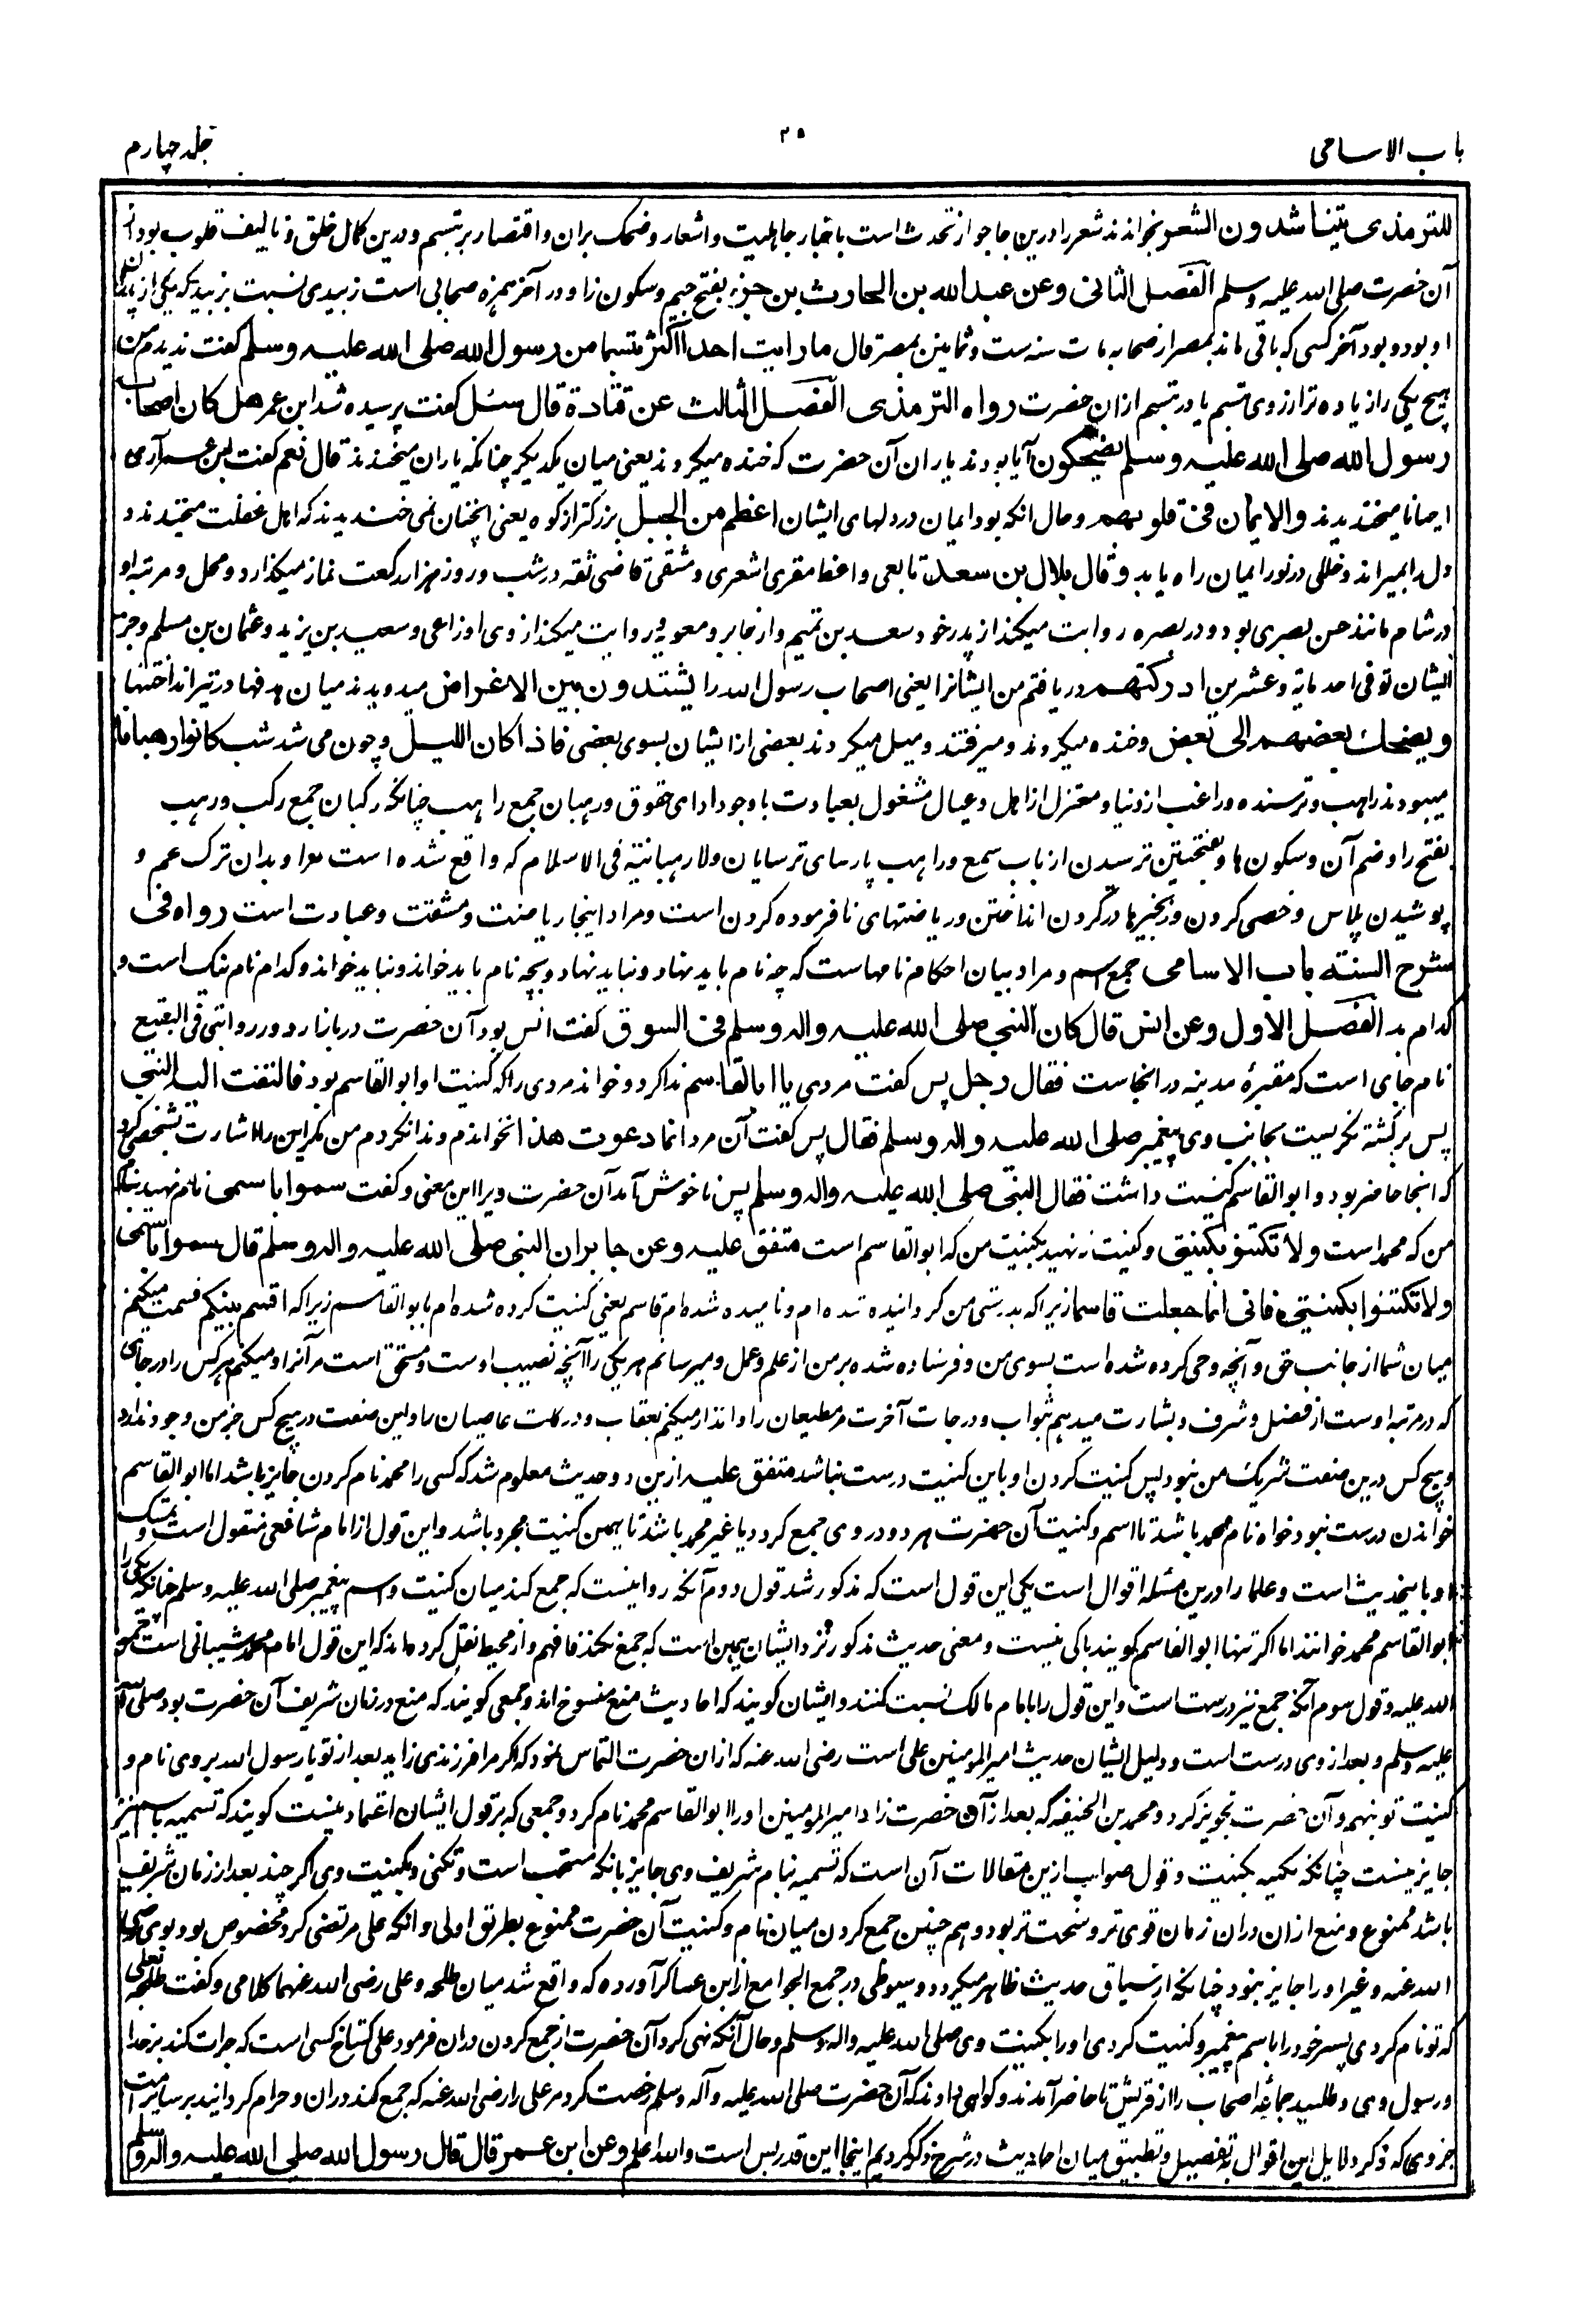 باب الاسامی
۲۵
جلد چهارم
للترمذی یتناشدون الشعر بخواندند شعر را درین جا جواز تحدث است باخبار جاهلیت و اشعار و ضحک بران و اقتصار بر تبسم و درین کمال خلق و تالیف قلوب بود از
آن حضرت صلی الله علیه وسلم الفصل الثانی وعن عبد الله بن الحارث بن جزء بفتح جیم و سکون زا و در آخر همزه صحابی است زبیدی نسبت بزبید که یکی از پدران
او بود و بود آخر کسی که باقی ماند بمصر از صحابه مات سنه ست و ثمانین بمصر قال ما رایت احدا اکثر تبسما من رسول الله صلی الله علیه وسلم گفت ندیدم من
هیچ یکی را زیاده تر از روی تبسم یا در تبسم ازان حضرت رواه الترمذی الفصل الثالث عن قتادة قال سئل گفت پرسیده شد ابن عمر هل کان اصحاب
رسول الله صلی الله علیه وسلم یضحکون آیا بودند یاران آن حضرت که خنده میکردند یعنی میان یکدیگر چنانکه یاران میخندند قال نعم گفت ابن عمر آری
احیانا میخندیدند والایمان فی قلوبهم و حال انکه بود ایمان در دلهای ایشان اعظم من الجبل بزرگتر از کوه یعنی انچنان نمی خندیدند که اهل غفلت میخندند و
دل را بمیراند و خللی در نور ایمان راه یابد وقال بلال بن سعد تابعی واعظ مقری اشعری دمشقی قاضی ثقه در شب و روز هزار رکعت نماز میگذارد و محل و مرتبه او
در شام مانند حسن بصری بود در بصره روایت میکند از پدر خود سعد بن تمیم و از جابر و معویه و روایت میکند از وی اوزاعی و سعید بن یزید و عثمان بن مسلم و جز
ایشان توفی احد مایة و عشرین ادرکتهم دریافتم من ایشانرا یعنی اصحاب رسول الله را یشتدون بین الاغراض میدویدند میان هدفها در تیراندا ختنها
ویضحک بعضهم الی بعض و خنده میکردند و میرفتند و میل میکردند بعضی از ایشان بسوی بعضی فاذا کان اللیل و چون می شد شب کانوا رهبانا
میبودند راهب و ترسنده و راغب از دنیا و معتزل از اهل و عیال مشغول بعبادت با وجود ادای حقوق و رهبان جمع راهب چنانکه رکبان جمع رکب و رهب
بفتح را و ضم آن و سکون ها و بفتحتین ترسیدن از باب سمع و راهب پارسای ترسایان ولا رهبانیة فی الاسلام که واقع شده است مراد بدان ترک عم و
پوشیدن پلاس و خصی کردن و زنجیرها در گردن انداختن و ریاضتهای نافرموده کردن است و مراد اینجا ریاضت و مشقت و عبادت است رواه فی
شرح السنة باب الاسامی جمع اسم و مراد بیان احکام نامهاست که چه نام باید نهاد و نباید نهاد و بچه نام باید خواند و نباید خواند و کدام نام نیک است و
کدام بد الفصل الاول وعن انس قال کان النبی صلی الله علیه واله وسلم فی السوق گفت انس بود آن حضرت در بازار و در روایتی فی البقیع
نام جای است که مقبرهٔ مدینه در انجاست فقال رجل پس گفت مردی یا ابا القاسم ندا کرد و خواند مردی را که کنیت او ابو القاسم بود فالتفت الیه النبی
پس برگشته نگریست بجانب وی پیغمبر صلی الله علیه واله وسلم فقال پس گفت آن مرد انما دعوت هذا نخواندم و ندا نکردم من مگر این را اشارت بشخصی کرد
که انجا حاضر بود و ابو القاسم کنیت داشت فقال النبی صلی الله علیه واله وسلم پس ناخوش آمد آن حضرت را این معنی و گفت سموا باسمی نام نهید بنام
من که محمد است ولا تکتنوا بکنیتی و کنیت نه نهید بکنیت من که ابو القاسم است متفق علیه وعن جابر ان النبی صلی الله علیه واله وسلم قال سموا باسمی
ولا تکتنوا بکنیتی فانی انما جعلت قاسما زیرا که بدرستی من گردانیده شده ام و نامیده شده ام قاسم یعنی کنیت کرده شده ام بابو القاسم زیرا که اقسم بینکم قسمت میکنم
میان شما از جانب حق و آنچه وحی کرده شده است بسوی من و فرستاده شده بر من از علم و عمل و میرسانم هر یکی را آنچه نصیب اوست و مستحق است مر آنرا و میکنم هر کس را در جای
که در مرتبه اوست از فضل و شرف و بشارت میدهم بثواب و درجات آخرت مر مطیعان را و انذار میکنم بعقاب و درکات عاصیان را و این صفت در هیچ کس جز من وجود ندارد
و هیچ کس درین صفت شریک من نبود پس کنیت کردن او باین کنیت درست نباشد متفق علیه ازین دو حدیث معلوم شد که کسی را محمد نام کردن جایز باشد اما ابو القاسم
خواندن درست نبود خواه نام محمد باشد تا اسم و کنیت آن حضرت هر دو در وی جمع گردد یا غیر محمد باشد تا همین کنیت مجرد باشد و این قول از امام شافعی منقول است و تمسک
او باینحدیث است و علما را درین مسئله اقوال است یکی این قول است که مذکور شد قول دوم آنکه روا نیست که جمع کند میان کنیت و اسم پیغمبر صلی الله علیه وسلم چنانکه یکی را
ابو القاسم محمد خوانند اما اگر تنها ابو القاسم گویند باکی نیست و معنی حدیث مذکور نزد ایشان همین است که جمع نکنند فافهم و از محیط نقل کرده اند که این قول امام محمد شیبانی است رحمه
الله علیه و قول سوم آنکه جمع نیز درست است و این قول را بامام مالک نسبت کنند و ایشان گویند که احادیث منع منسوخ اند و جمعی گویند که منع در زمان شریف آن حضرت بود صلی الله
علیه وسلم و بعد از وی درست است و دلیل ایشان حدیث امیر المومنین علی است رضی الله عنه که ازان حضرت التماس نمود که اگر مرا فرزندی زاید بعد از تو یا رسول الله بروی نام و
کنیت تو بنهم و آن حضرت تجویز کرد و محمد بن الحنیفه که بعد از آن حضرت زاد امیر المومنین او را ابو القاسم محمد نام کرد و جمعی که بر قول ایشان اعتماد نیست گویند که تسمیه باسم نیز
جایز نیست چنانکه تکنیه بکنیت و قول صواب ازین مقالات آن است که تسمیه بنام شریف وی جایز بلکه مستحب است و تکنی بکنیت وی اگر چند بعد از زمان شریف
باشد ممنوع و منع ازان دران زمان قوی تر و سخت تر بود و هم چنین جمع کردن میان نام و کنیت آن حضرت ممنوع بطریق اولی و انکه علی مرتضی کرد مخصوص بود بوی رضی
الله عنه و غیر او را جایز نبود چنانکه از سیاق حدیث ظاهر میگردد و سیوطی در جمع الجوامع از ابن عساکر آورده که واقع شد میان طلحه و علی رضی الله عنهما کلامی و گفت طلحه بعلی
که تو نام کردی پسر خود را باسم پیغمبر و کنیت کردی او را بکنیت وی صلی الله علیه واله وسلم و حال آنکه نهی کرد آن حضرت از جمع کردن دران فرمود علی گستاخ کسی است که جرات کند بر خدا
و رسول وی و طلبید جماعهٔ اصحاب را از قریش تا حاضر آمدند و گواهی دادند که آن حضرت صلی الله علیه وآله وسلم رخصت کرد مر علی را رضی الله عنه که جمع کند دران و حرام گردانید بر سایر امت
جز وی که ذکر دلایل این اقوال بتفصیل و تطبیق میان احادیث در شرح ذکر کردیم اینجا این قدر بس است والله اعلم وعن ابن عمر قال قال رسول الله صلی الله علیه واله وسلم